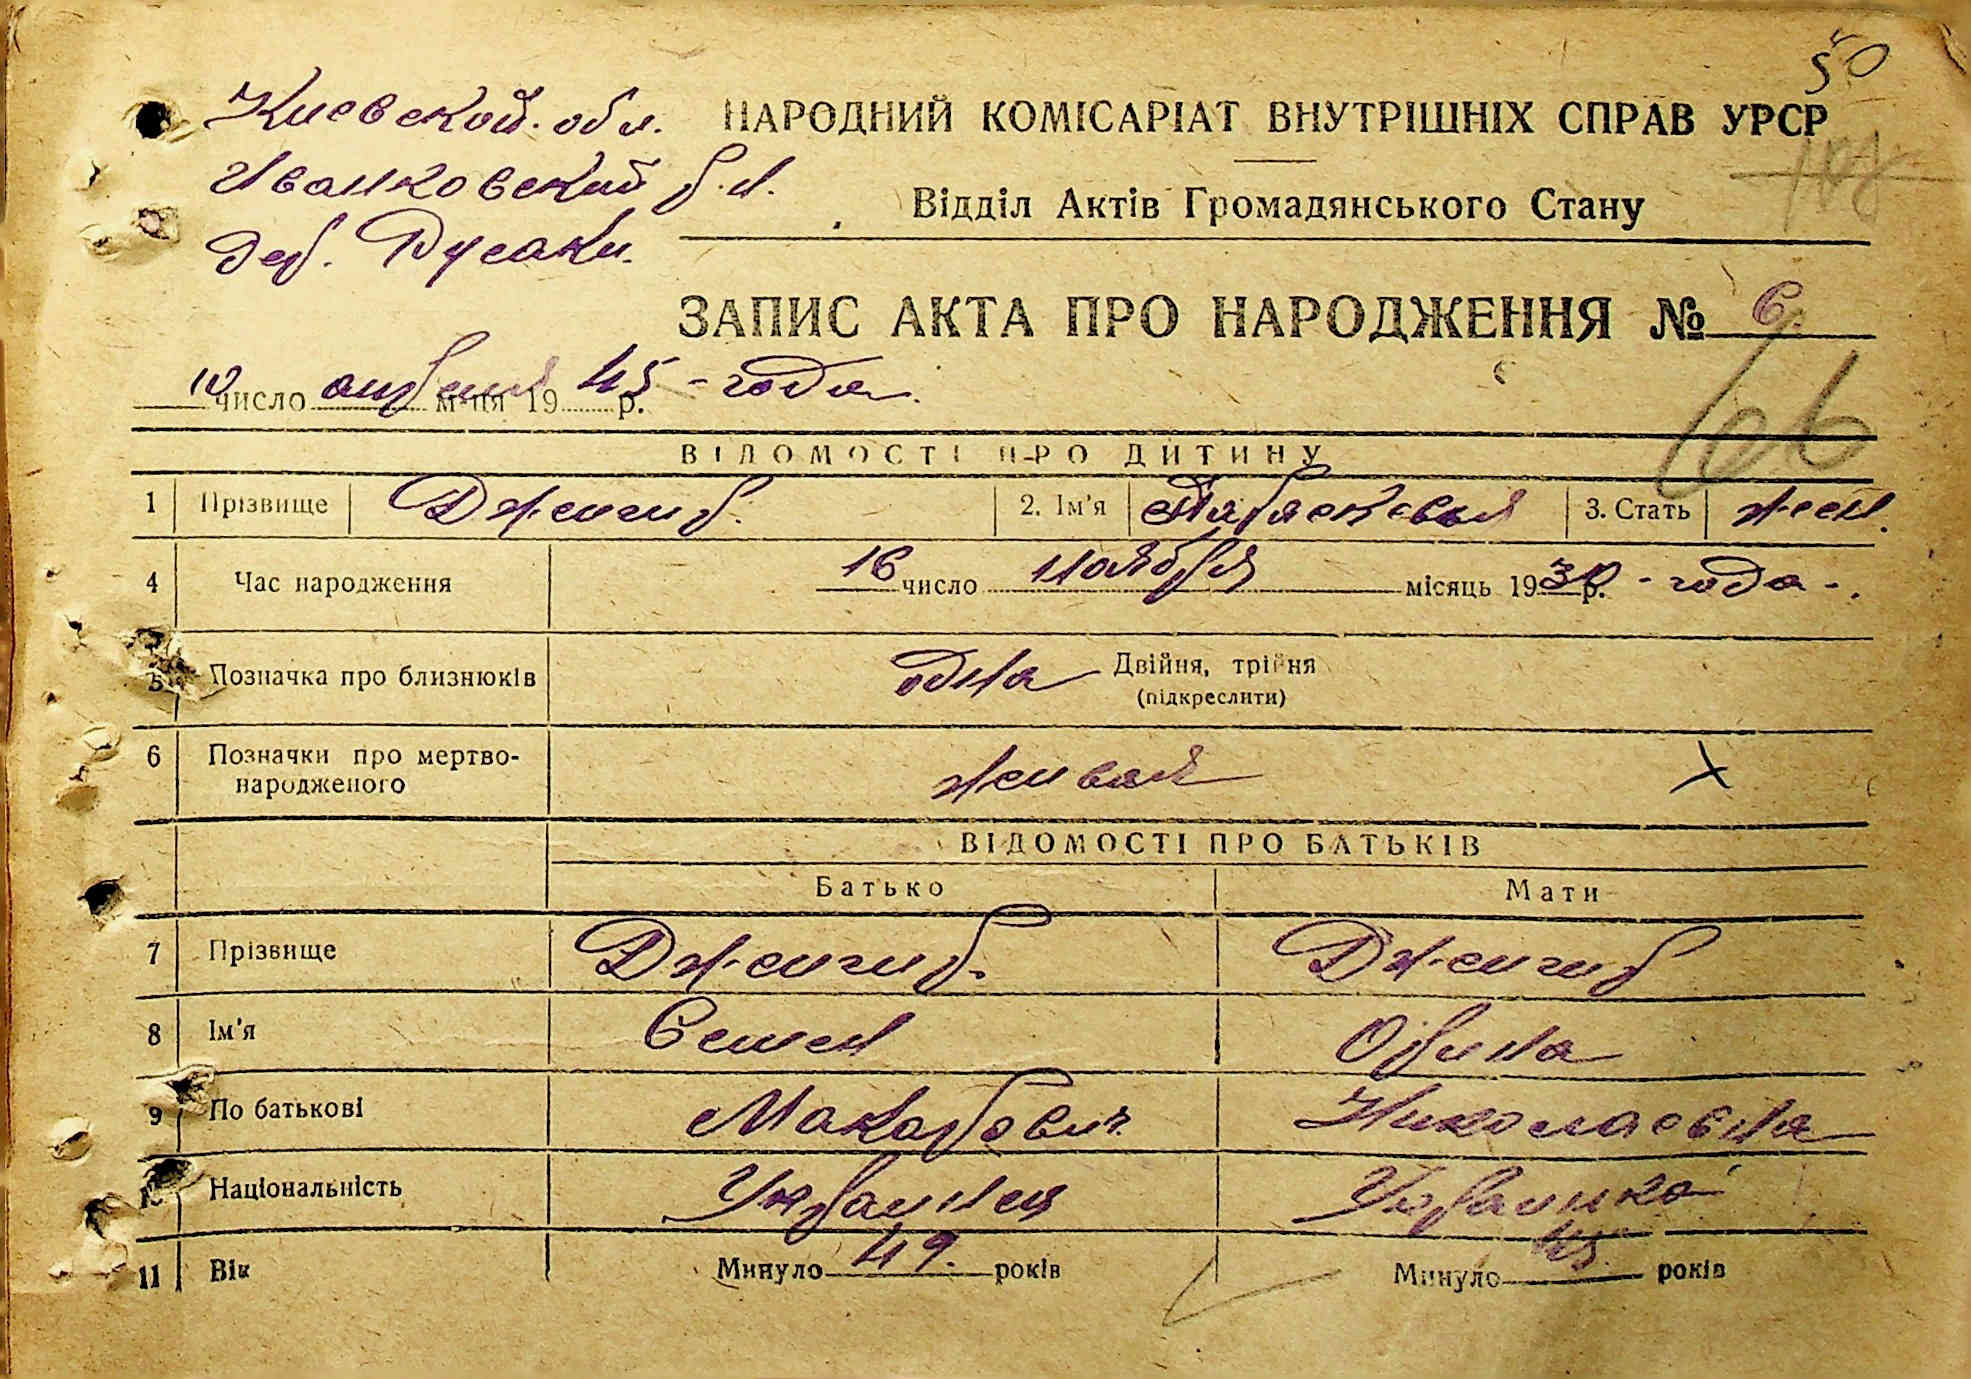 50
Киевской обл.
НАРОДНИЙ КОМІСАРІАТ ВНУТРІШНІХ СПРАВ УРСР
Иванковский р.н.
108
Відділ Актів Громадянського Стану
дер. Русаки.
ЗАПИС АКТА ПРО НАРОДЖЕННЯ № 6.
10 число апреля м-ця 1945 р. - года.
66
ВІДОМОСТІ ПРО ДИТИНУ
1 Прізвище Джегир. 2. Ім'я 3. Стать жен.
4 Час народження 16 число ноября місяць 1930 р. - года -.
5 Позначка про близнюків одна Двійня, трійня
(підкреслити)
6 Позначки про мертво-
народженого живая
ВІДОМОСТІ ПРО БАТЬКІВ
Батько Мати
7 Прізвище Джегир. Джегир
8 Ім'я Семен Орина
9 По батькові Макарович Николаевна
10 Національність Украинец Украинка
11 Вік Минуло 49. років Минуло 45 років